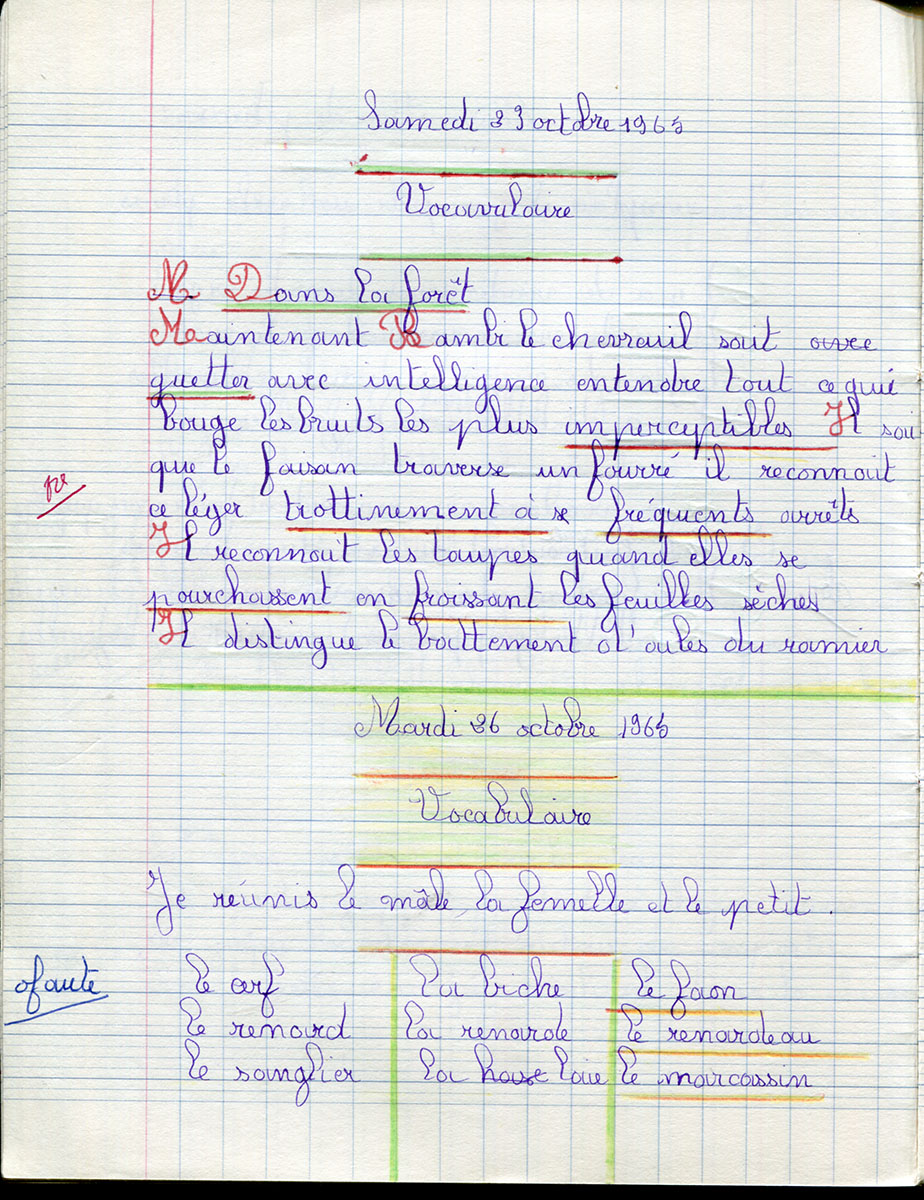 Samedi 23 octobre 1965
Vocavulaire
M Dans la forêt
Maintenant Bambi le chevreuil sait avec
guetter avec intelligence entendre tout ce qui
bouge les bruits les plus imperceptibles Il sai
que le faisan traverse un fourré il reconnait
ce léger trottinement à se fréquents arrêts
Il reconnait les taupes quand elles se
pourchassent en froissant les feuilles sèches
Il distingue le battement d'ailes du ramier
Mardi 26 octobre 1965
Vocabulaire
Je réunis le mâle, la femelle et le petit.
0 faute le cerf la biche le faon
le renard la renarde le renardeau
le sanglier la hase laie le marcassin